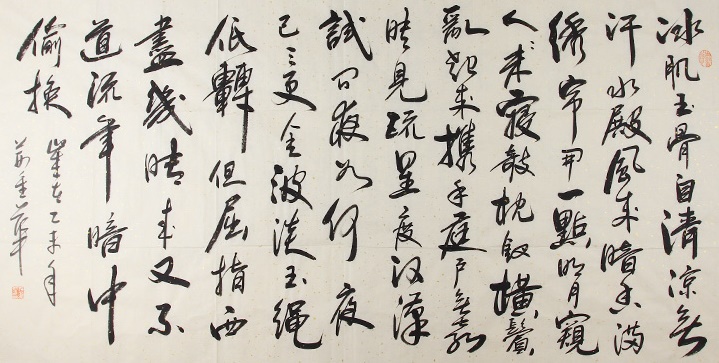 冰肌玉骨自清涼無
汗水殿風來暗香滿
繡帘開一點明月窺
人々未寢敧枕釵橫鬢
亂起來攜手庭戶無聲
時見疏星度河漢
試問夜如何夜
已三更金波淡玉繩
低轉但屈指西
幾時來又不
道流年暗中
偷換
乙未年